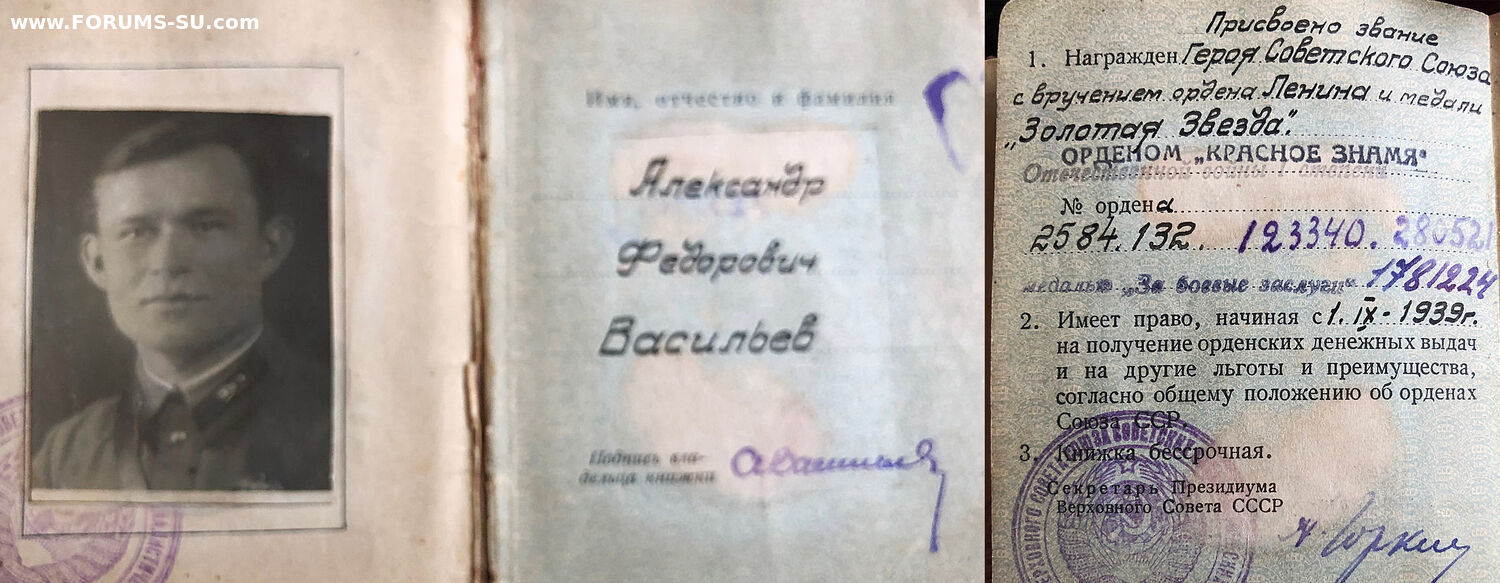 www.FORUMS-SU.com
Имя, отчество и фамилия
Александр
Федорович
Васильев
Подпись вла-
дельца книжки
АВасильев
Присвоено звание
1. Награжден Героя Советского Союза
с вручением ордена Ленина и медали
„Золотая Звезда".
ОРДЕНОМ „КРАСНОЕ ЗНАМЯ"
Отечественной войны I степени
№ ордена
2584.132. 123340. 280521
медалью „За боевые заслуги" 1781224
2. Имеет право, начиная с 1. IX - 1939г.
на получение орденских денежных выдач
и на другие льготы и преимущества,
согласно общему положению об орденах
Союза ССР.
3. Книжка бессрочная.
Секретарь Президиума
Верховного Совета СССР